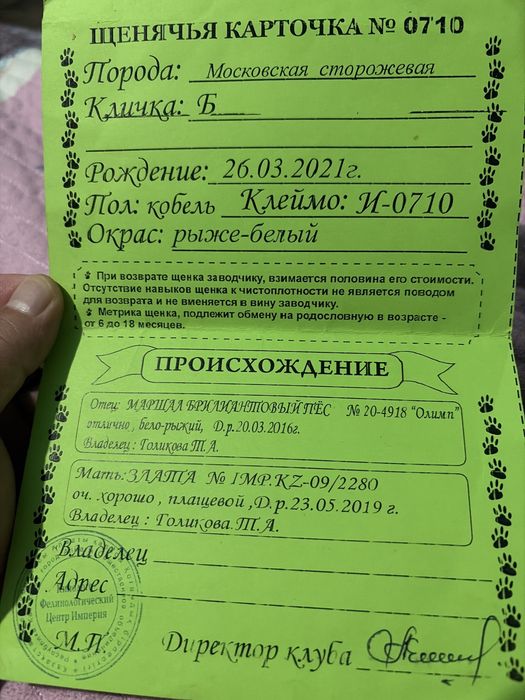 ЩЕНЯЧЬЯ КАРТОЧКА № 0710
Порода: Московская сторожевая
Кличка: Б
Рождение: 26.03.2021г.
Пол: кобель Клеймо: И-0710
Окрас: рыже-белый
При возврате щенка заводчику, взимается половина его стоимости.
Отсутствие навыков щенка к чистоплотности не является поводом
для возврата и не вменяется в вину заводчику.
Метрика щенка, подлежит обмену на родословную в возрасте -
от 6 до 18 месяцев.
ПРОИСХОЖДЕНИЕ
Отец: МАРШАЛ БРИЛИАНТОВЫЙ ПЁС № 20-4918 "Олимп"
отлично, бело-рыжий, Д.р.20.03.2016г.
Владелец: Голикова Т.А.
Мать: ЗЛАТА № IMP.KZ-09/2280
оч. хорошо, плащевой, Д.р.23.05.2019 г.
Владелец : Голикова.Т.А.
Владелец
Адрес
Фелинологический
Центр Империя
М.П. Директор клуба